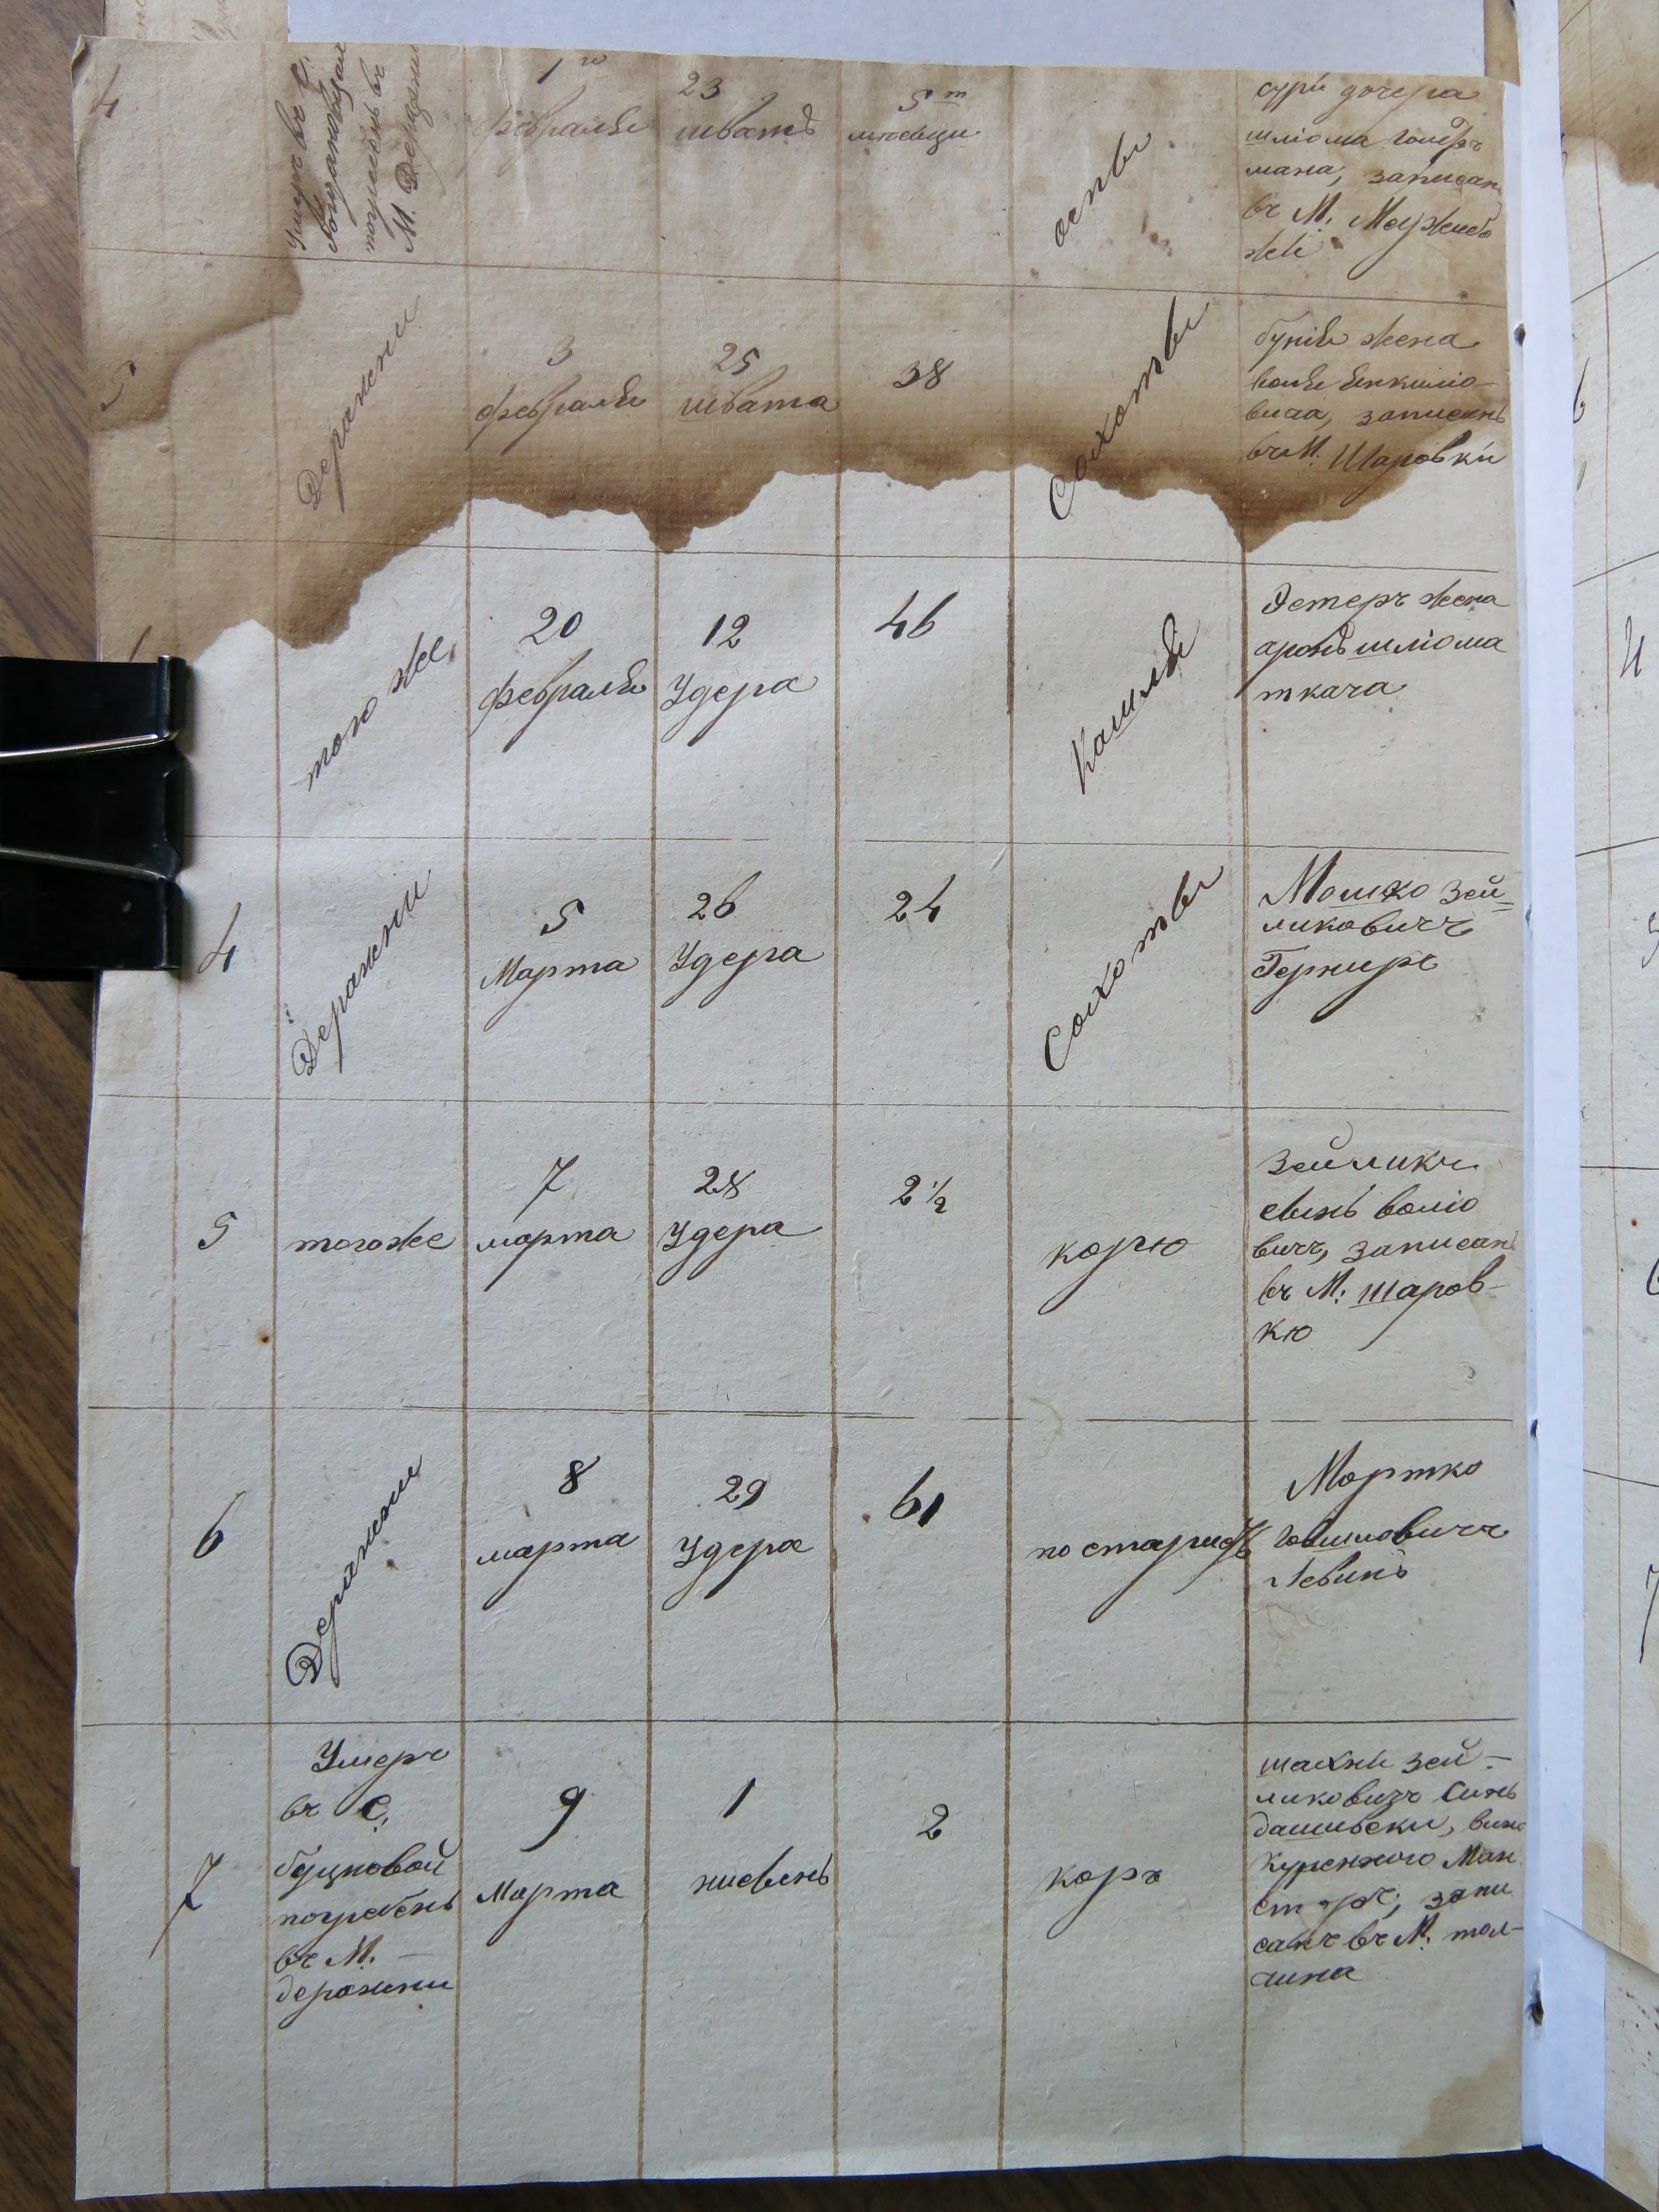 4
умеръ въ С.
погребенъ въ
М. Деражни
1го
февраля
23
шватъ
5 т
месяци
оспы
сури дочера
шліома гойфъ
мана, записан
въ М. Межибо
же
5
Деражни
3
февраля
25
швата
38
Сохоты
бунія жена
волѣ
вича, записанъ
въ М. Шаровки
того же
20
февраля
12
Удера
46
Кашля
Эстеръ жена
аронъ шліома
ткача
4
Деражни
5
Марта
26
Удера
24
Сохоты
Мошко Зей=
ликовичъ
Гернеръ
5
тогоже
7
марта
28
Удера
2 1/2
корю
Зейликъ
сынъ воліо
вичъ, записан
въ М: шаров-
кю
6
Деражни
8
марта
29
Удера
61
по старисть
Мортко
Левинъ
7
Умеръ
въ С,
буцновой
погребенъ
въ М. —
деражни
9
Марта
1
нисвень
2
коръ
шахне зей-
ликовичъ синъ
дашивски, вино
куренного Маи
стора; запи
санъ въ М. тол-
чина